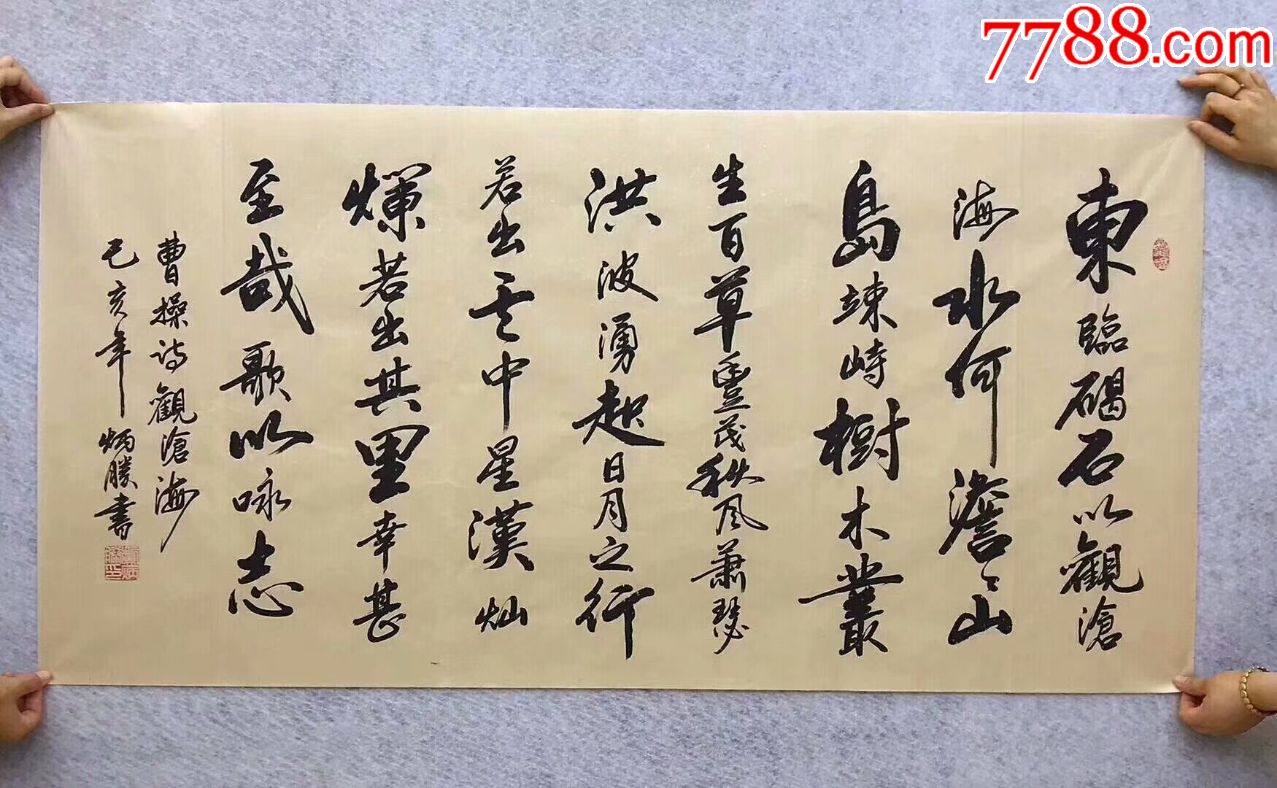 7788.com
東臨碣石以觀滄
海水何澹々山
島竦峙樹木叢
生百草豐茂秋风萧瑟
洪波湧起日月之行
若出其中星漢灿
爛若出其里幸甚
至哉歌以咏志
曹操詩觀滄海
己亥年炳勝書